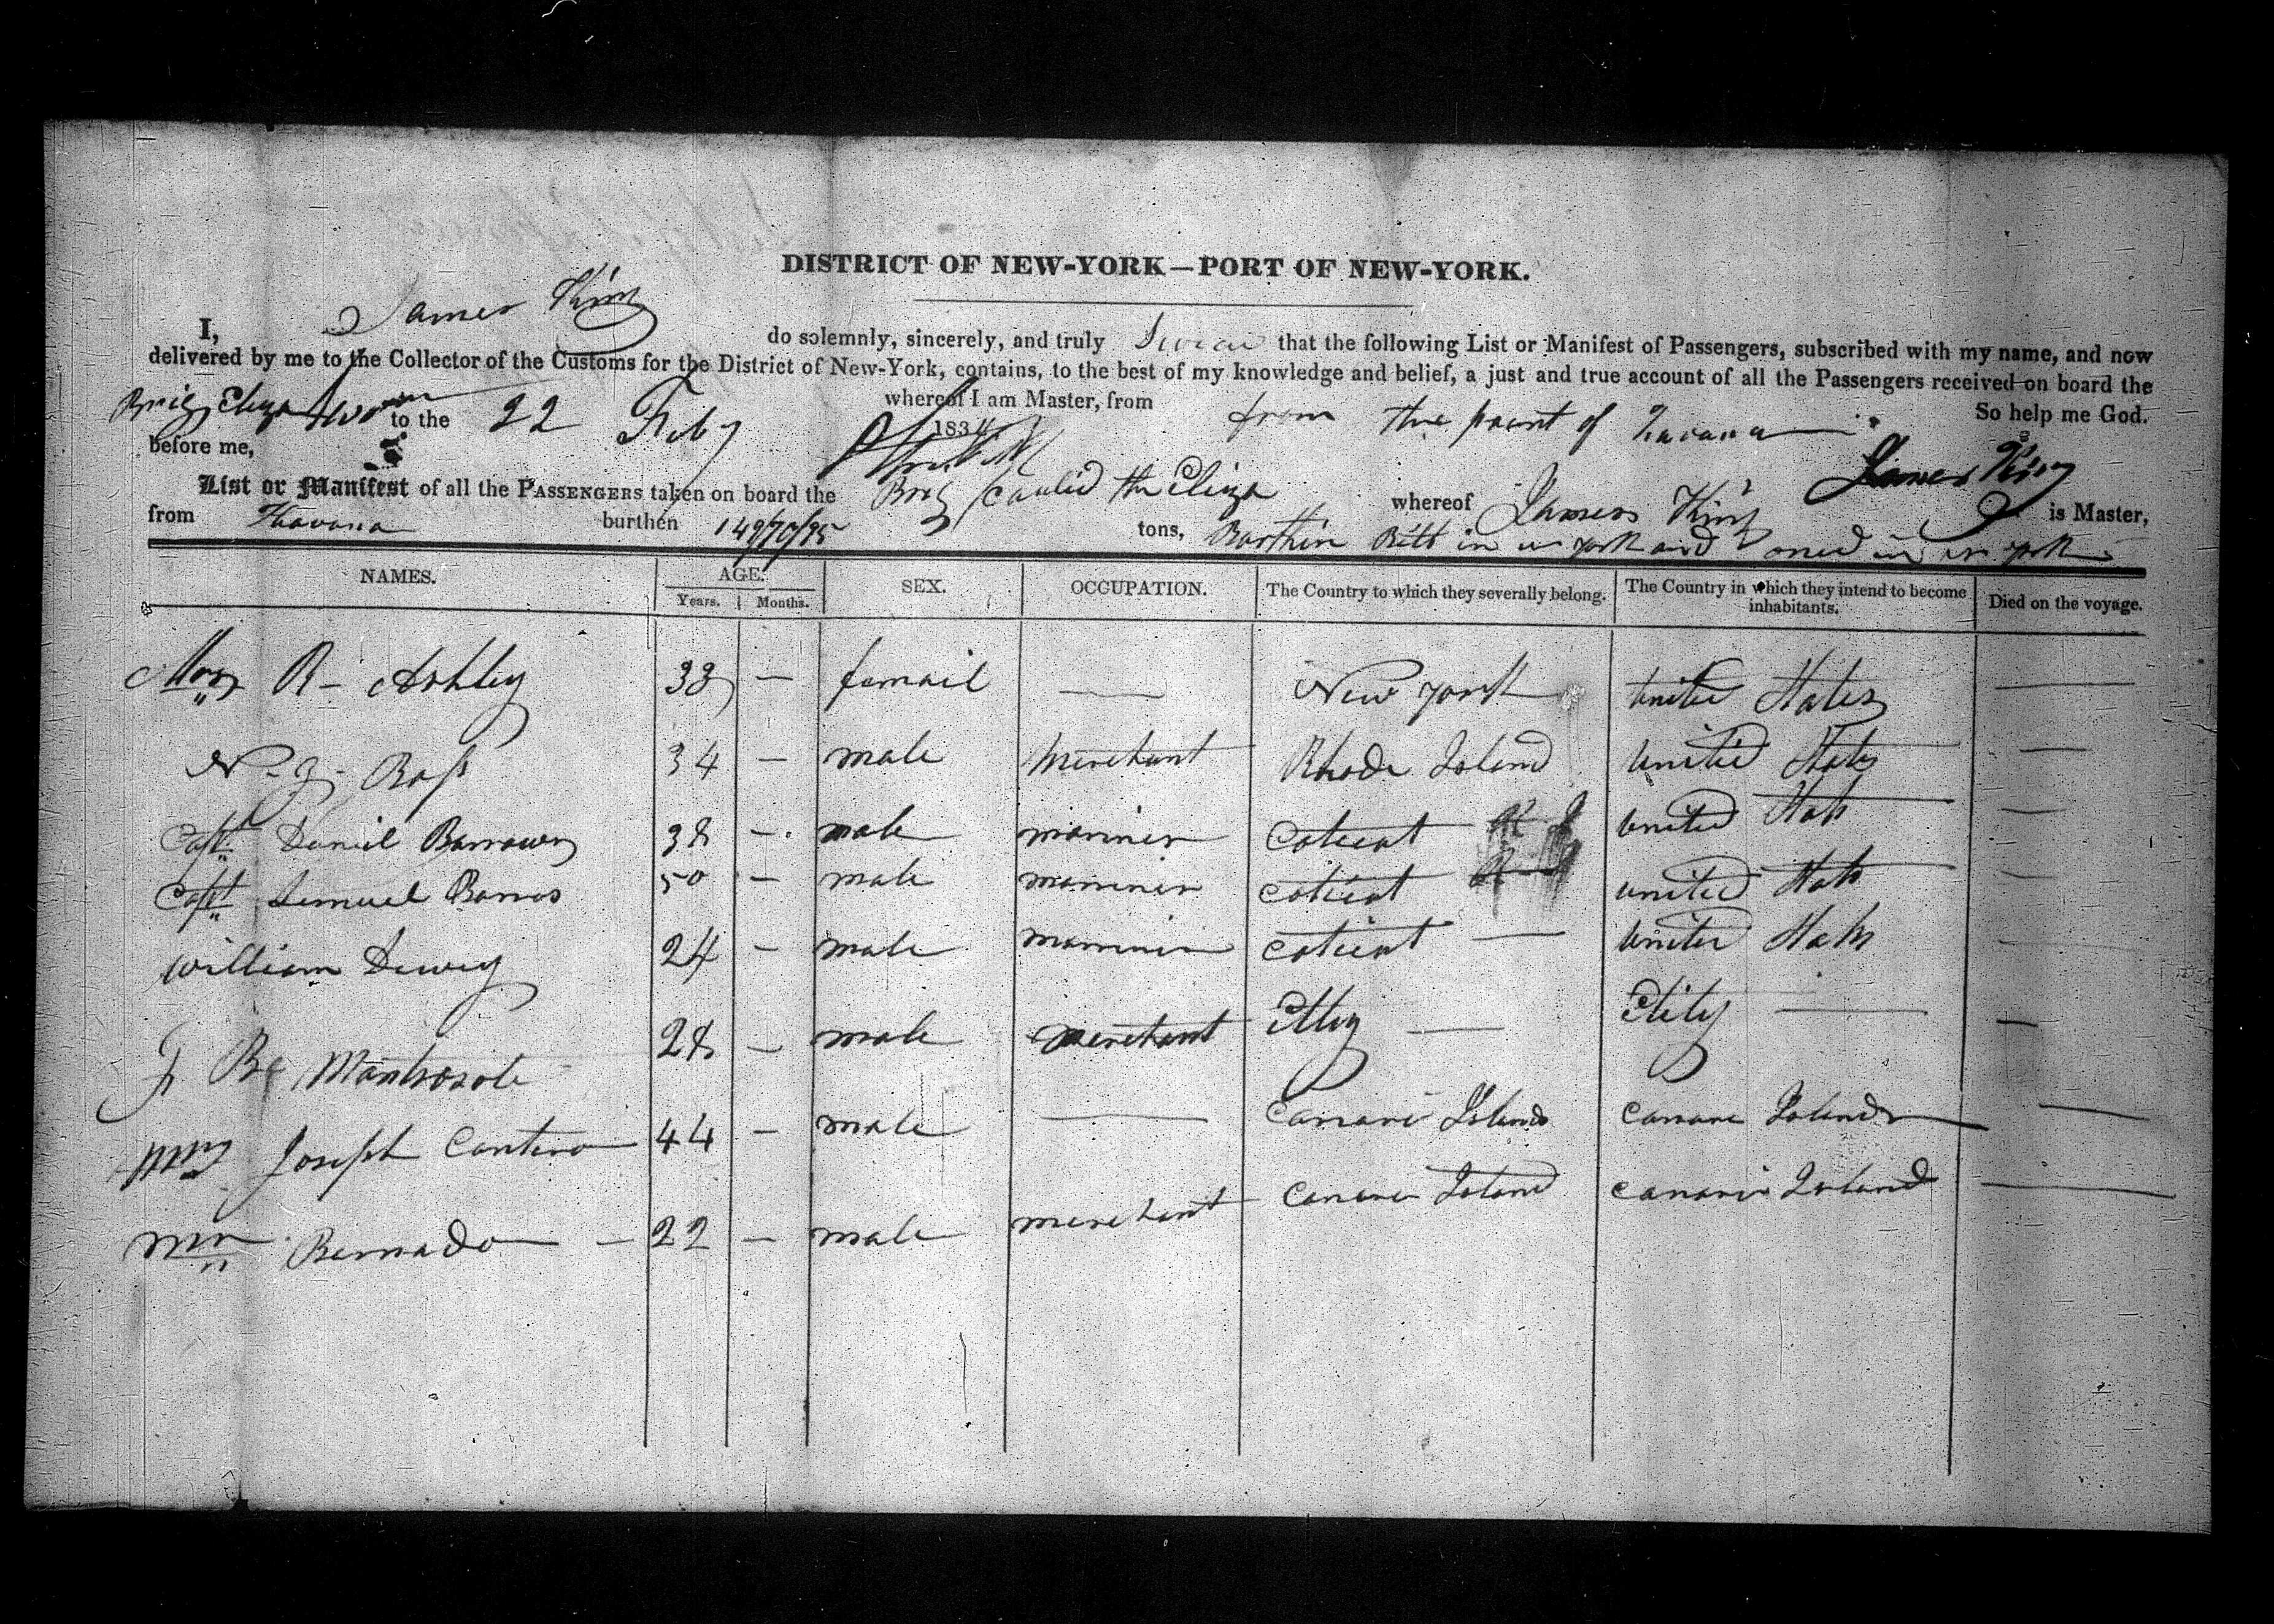 DISTRICT OF NEW-YORK—PORT OF NEW-YORK.
I, James King do solemnly, sincerely, and truly Swear that the following List or Manifest of Passengers, subscribed with my name, and now
delivered by me to the Collector of the Customs for the District of New-York, contains, to the best of my knowledge and belief, a just and true account of all the Passengers received on board the
Brig Eliza whereof I am Master, from from the point of Havana So help me God.
to the 22 Feby 1834
before me, James King
List or Manifest of all the PASSENGERS taken on board the Brig Caulid the Eliza whereof James King is Master,
from Havana burthen 149/70/95 tons, Burthin Bilt in n york and oned in n york
NAMES. AGE. SEX. OCCUPATION. The Country to which they severally belong. The Country in which they intend to become inhabitants. Died on the voyage.
Years. Months.
R- Ashley 33 — femail — New york United States —
N- g- Boss 34 — male Merchant Rhode Island United States —
Capt Daniel Barrows 38 — male mariner coticut United Stats —
Capt Lemuel Barros 50 — male mariner coticut united Stats —
William Dewey 24 — male mariner coticut — United Stats —
28 — male merchant —
Joseph Cantero 44 — male — Canarie Islands Canare Islands —
Mr Bernado — 22 — male merchant Canarie Island Canarie Island —